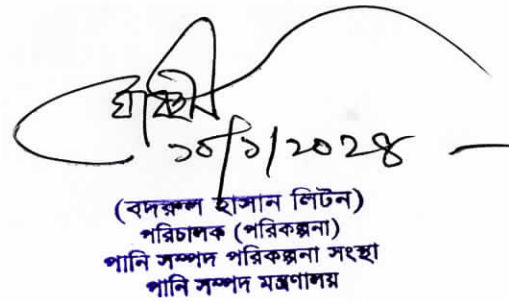 ১০/১/২০২৪
(বদরুল হাসান লিটন)
পরিচালক (পরিকল্পনা)
পানি সম্পদ পরিকল্পনা সংস্থা
পানি সম্পদ মন্ত্রণালয়